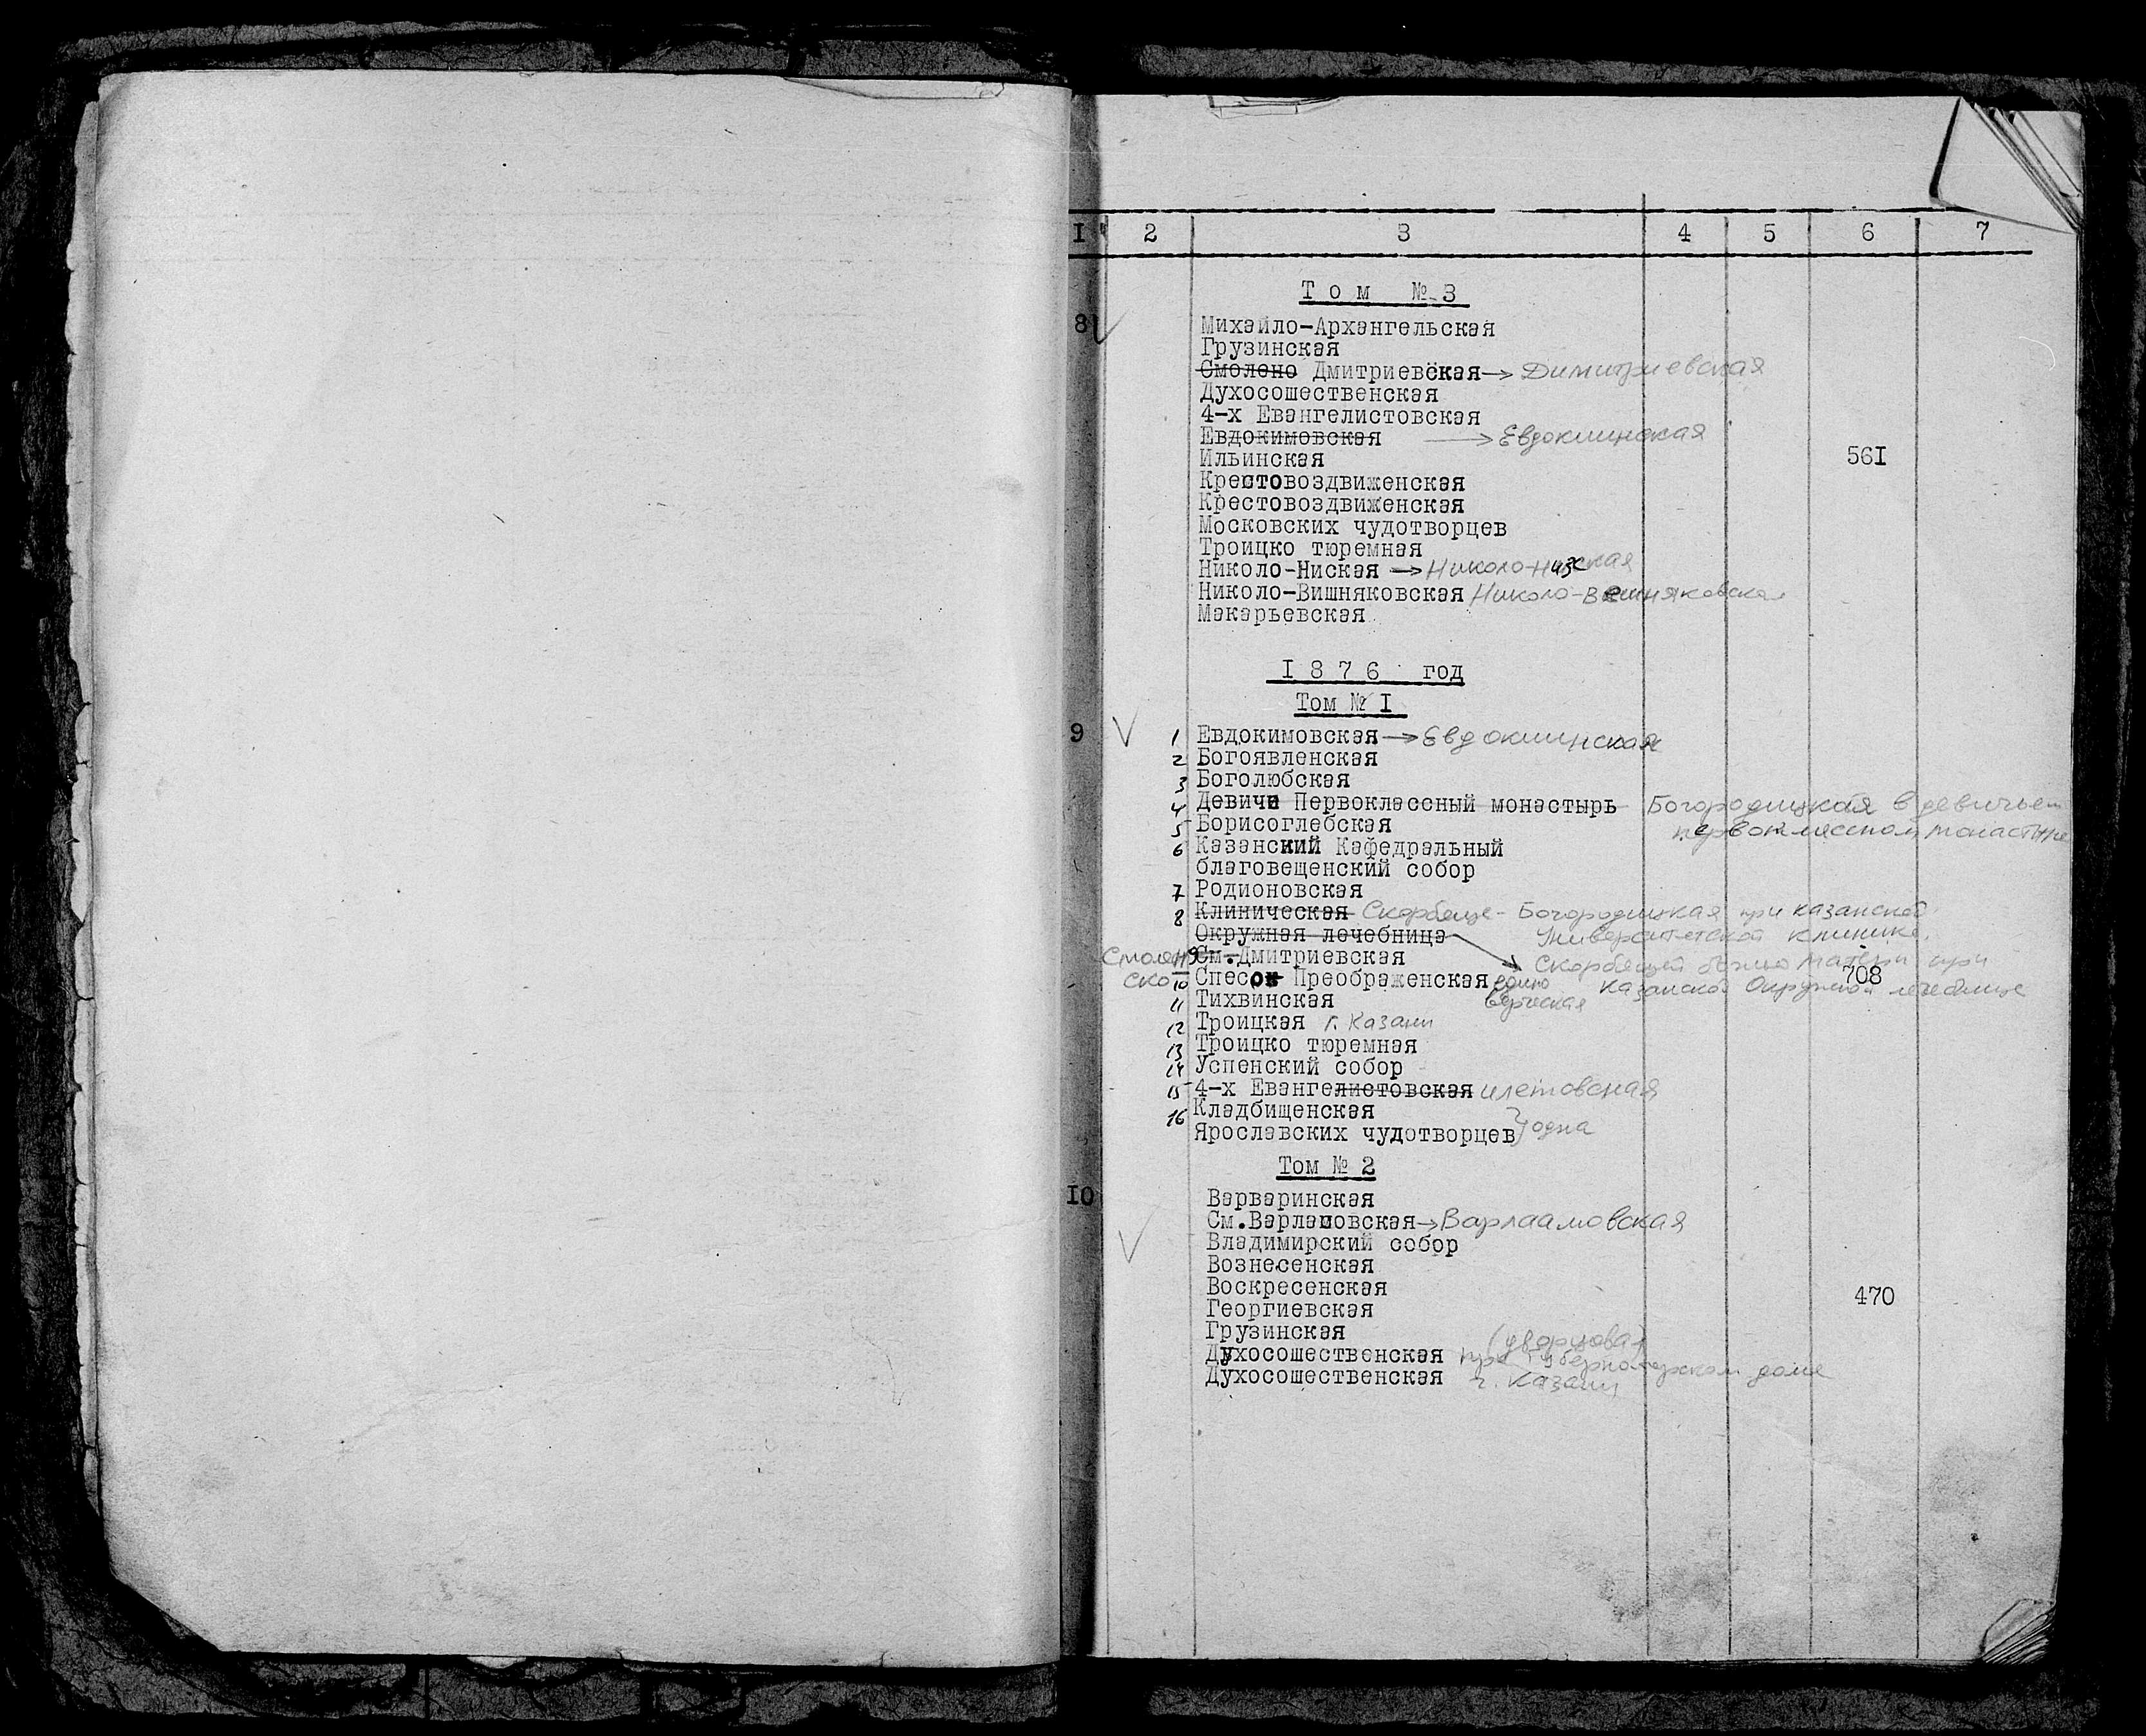 I 2 3 4 5 6 7
Том № 3
8 Михайло-Архангельская
Грузинская
Смолено Дмитриевская → Димитриевская
Духосошественская
4-х Евангелистовская
Евдокимовская → Евдокиинская
Ильинская 56I
Крестовоздвиженская
Крестовоздвиженская
Московских чудотворцев
Троицко тюремная
Николо-Ниская → Николо-низская
Николо-Вишняковская Николо-Вешняковская
Макарьевская
I876 год
Том № I
9 1 Евдокимовская → Евдокиинская
2 Богоявленская
3 Боголюбская
4 Девиче Первоклассный монастырь Богородицкая в девичьем
первоклассном монастыре
5 Борисоглебская
6 Казанский Кафедральный
благовещенский собор
7 Родионовская
8 Клиническая Скорбяще-Богородицкая при казанской
Университетской клинике.
Окружная лечебница → Скорбящей божьо матери при
Казанской Окружной лечебнице
Смолен
ско
9 См.Дмитриевская
10 Спесок Преображенская едино
верческая 708
11 Тихвинская
12 Троицкая г. Казани
13 Троицко тюремная
14 Успенский собор
15 4-х Евангелистовская илетовская
16 Кладбищенская
Ярославских чудотворцев } одна
Том № 2
I0 Варваринская
См.Варламовская → Варлаамовская
Владимирский собор
Вознесенская
Воскресенская
Георгиевская 470
Грузинская
(дворцовая)
Духосошественская при губернаторском доме
Духосошественская г. Казани